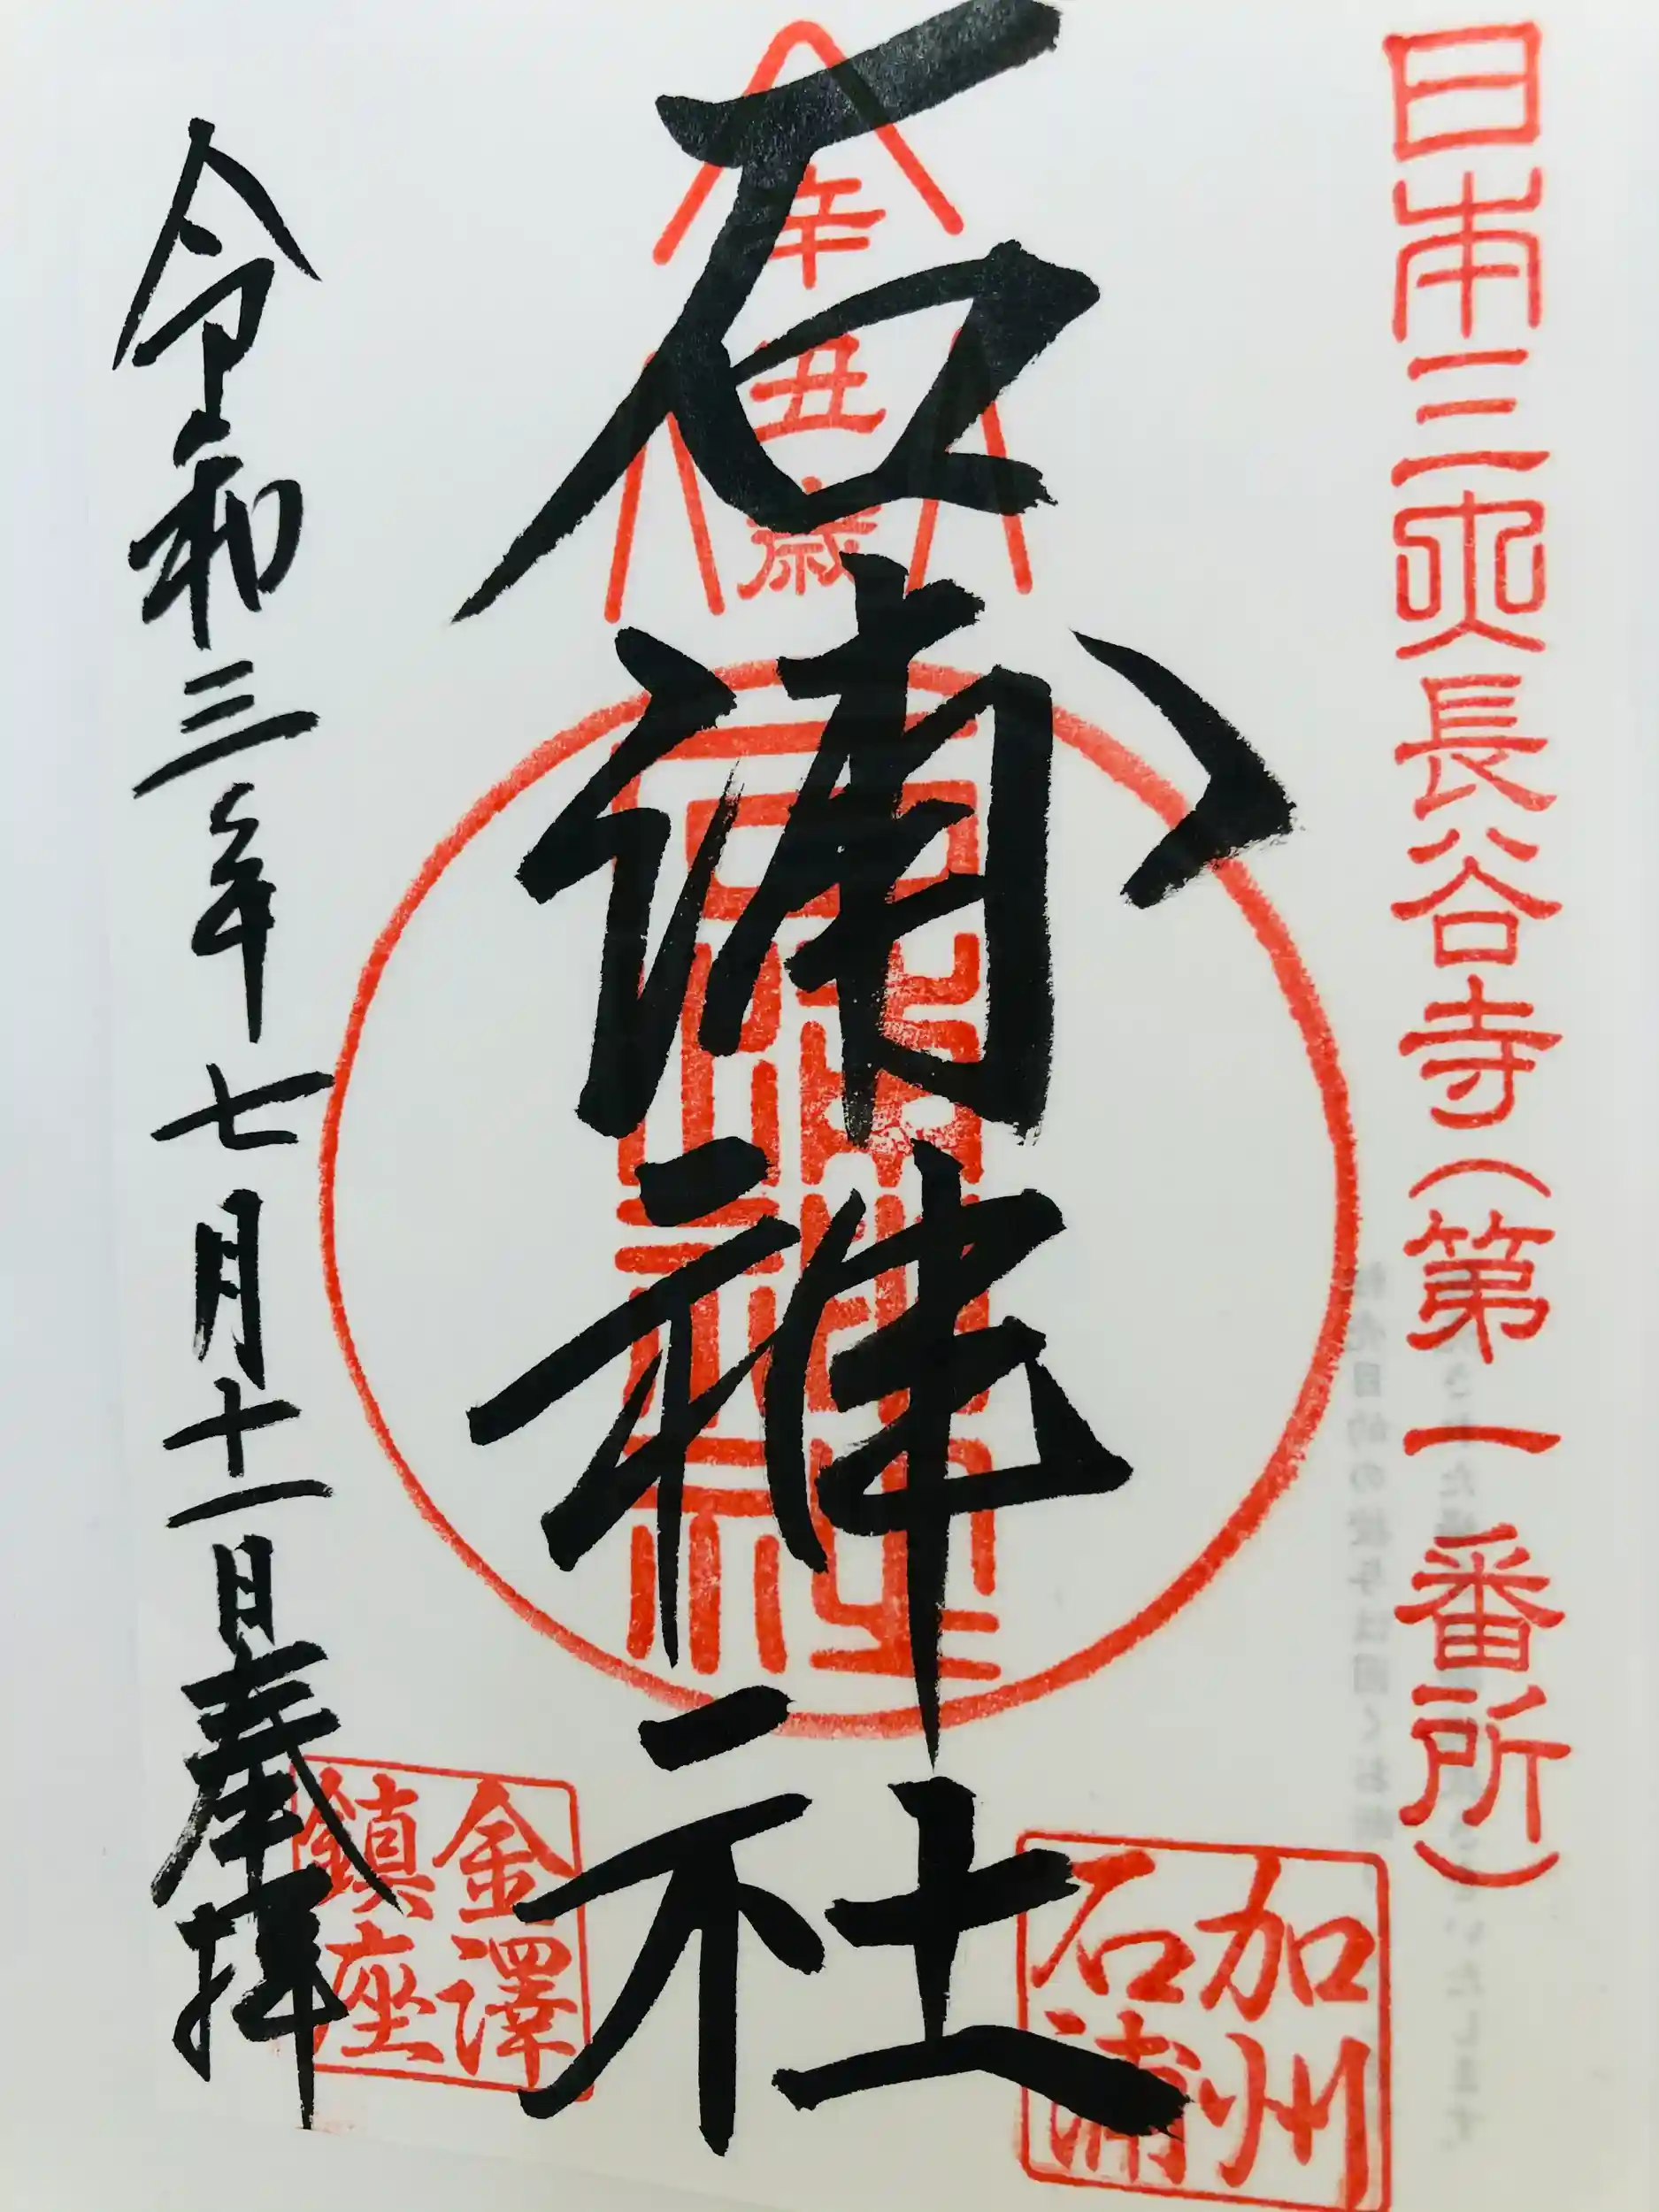 日本三央長谷寺(第一番所)
加州
石浦
年
丑
歳
石浦神社
石浦神社
金澤
鎮座
令和三年七月十一日奉拝